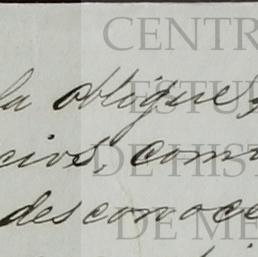 CENTR
la obligue y
ESTU
cios, com
DE HIST
desconoce
DE ME